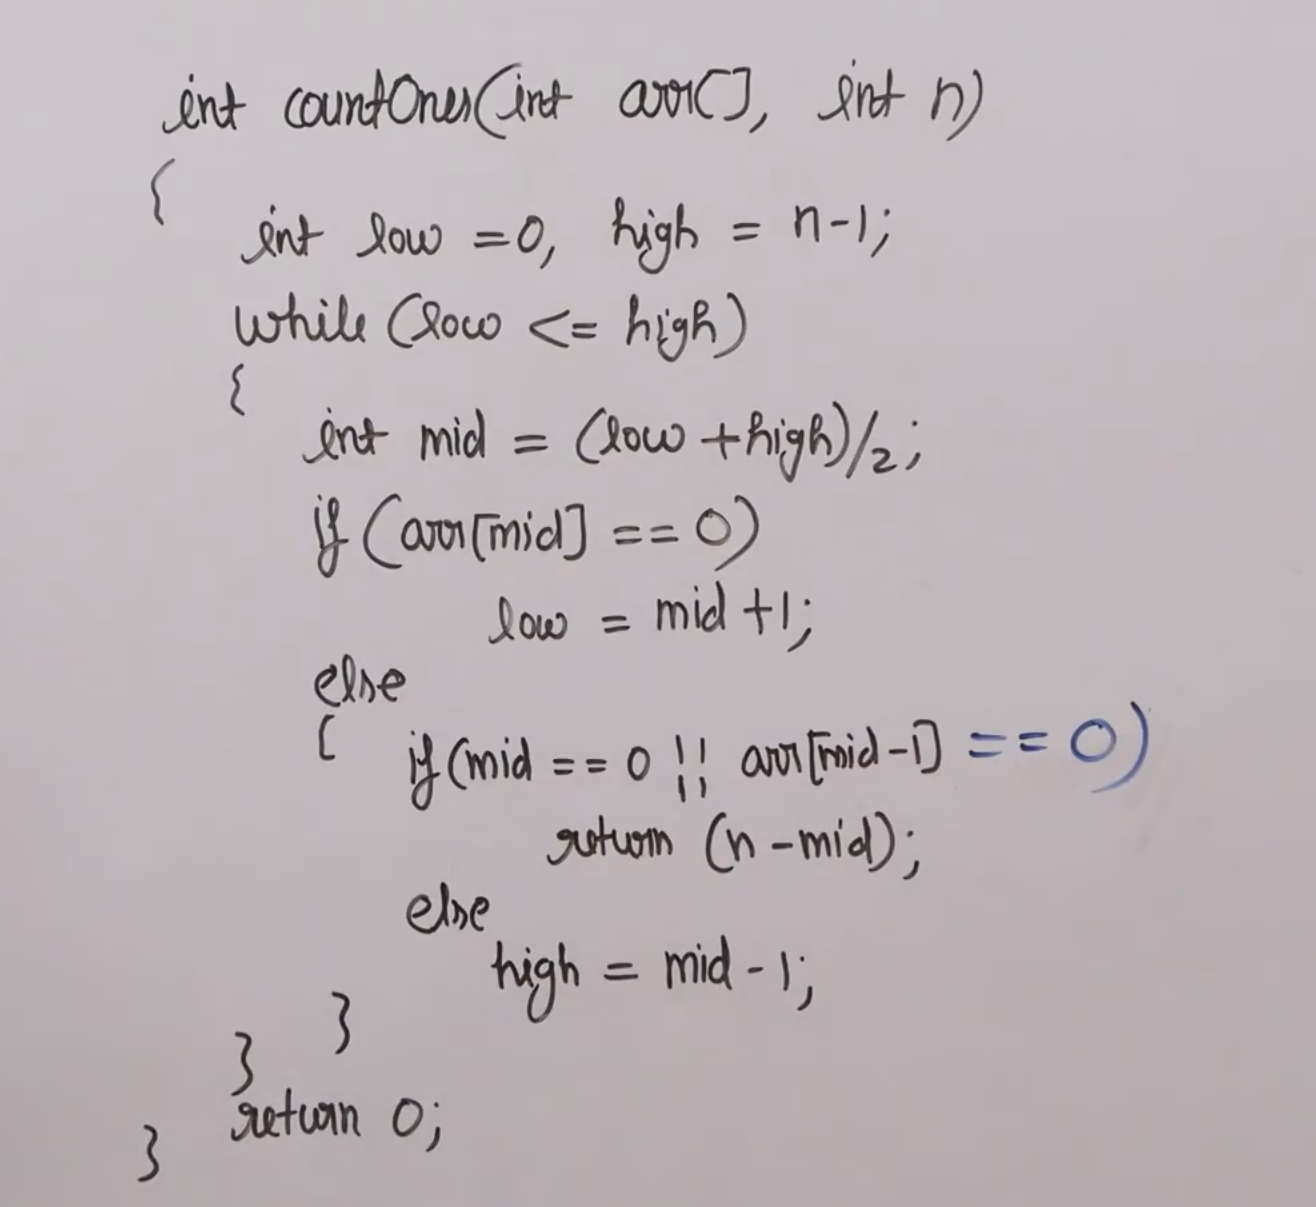 int countOnes(int arr[], int n)
{
int low = 0, high = n-1;
while (low <= high)
{
int mid = (low + high)/2;
if (arr[mid] == 0)
low = mid + 1;
else
{
if (mid == 0 || arr[mid-1] == 0)
return (n - mid);
else
high = mid - 1;
}
}
return 0;
}